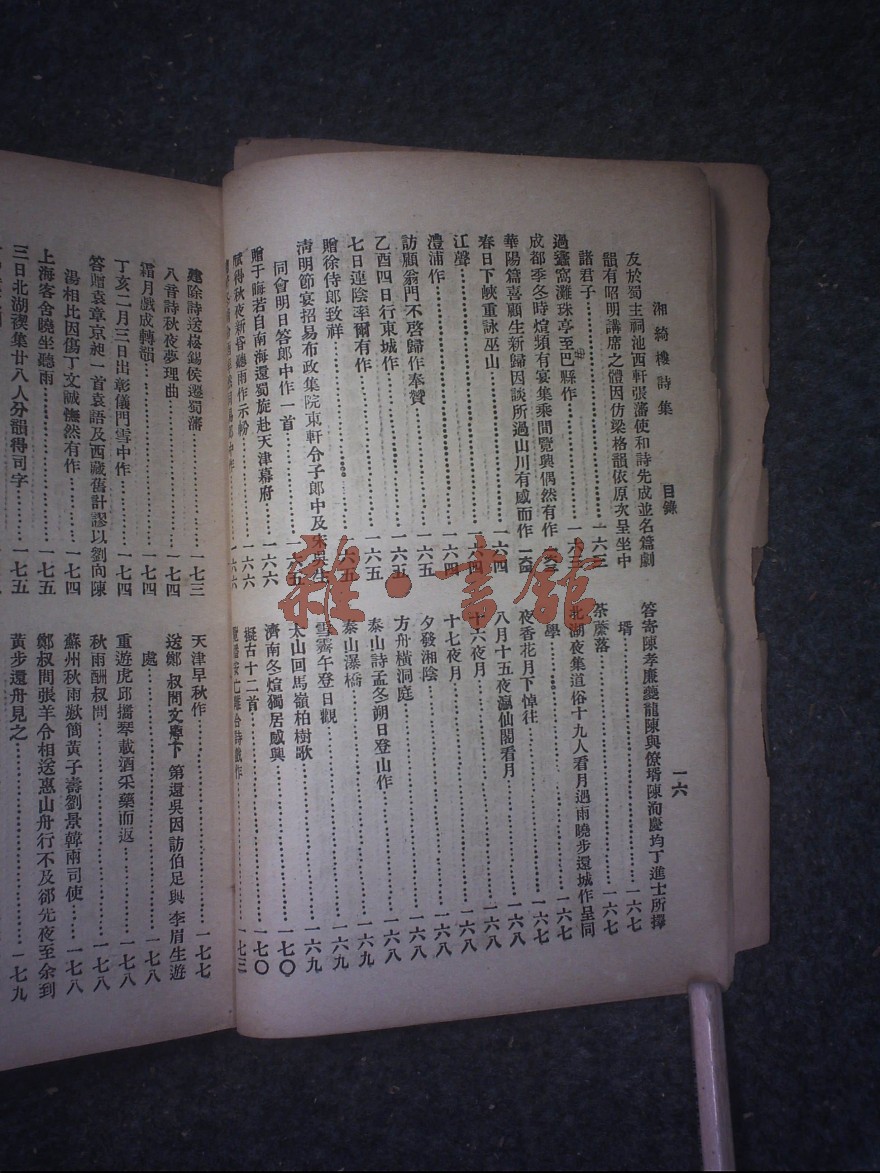 湘綺樓詩集 目錄 一六
友於蜀主祠池西軒張藩使和詩先成並名篇劇
韻有昭明講席之體因仿梁格韻依原次呈坐中
諸君子……一六三
過蠶窩灘珠亭至巴縣作……一六三
成都季冬時煊頻有宴集乘間覽興偶然有作
華陽篇喜顧生新歸因談所過山川有感而作
春日下峽重詠巫山……一六四
江聲……一六四
澧浦作……一六四
訪顧翁門不啓歸作奉贊……一六五
乙酉四日行東城作……一六五
七日連陰率爾有作……一六五
贈徐侍郎致祥……一六五
清明節宴招易布政集院東軒令子郎中及
同會明日答郎中作一首……一六五
贈于晦若自南海還蜀旋赴天津幕府……一六六
賦得秋夜新昏聽雨作示……一六六
答寄陳孝廉夔龍陳與僚壻陳洵慶均丁進士所擇
壻……一六七
荼蘼落……一六七
北湖夜集道俗十九人看月過雨曉步還城作呈同
學……一六七
夜香花月下悼往……一六七
八月十五夜瀛仙閣看月……一六八
十六夜月……一六八
十七夜月……一六八
夕發湘陰……一六八
方舟橫洞庭……一六八
泰山詩孟冬朔日登山作……一六八
泰山瀑橋……一六九
雪霽午登日觀……一六九
太山回馬嶺柏樹歌……一六九
濟南冬煊獨居感興……一七〇
擬古十二首……一七〇
建除詩送榕錫侯遷蜀藩……一七三
八音詩秋夜夢理曲……一七四
霜月戲成轉韻……一七四
丁亥二月三日出彰儀門雪中作……一七四
答贈袁章京昶一首袁語及西藏舊計謬以劉向陳
湯相比因傷丁文誠憮然有作……一七四
上海客舍曉坐聽雨……一七五
三日北湖禊集廿八人分韻得司字……一七五
天津早秋作……一七七
送鄭叔問文焯下第還吳因訪伯足與李眉生遊
處……一七八
重遊虎邱播琴載酒采藥而返……一七八
秋雨酬叔問……一七八
蘇州秋雨歎簡黃子壽劉景韓兩司使……一七八
鄭叔問張羊令相送惠山舟行不及卻先夜至余到
黃步還舟見之……一七九
雜·書館